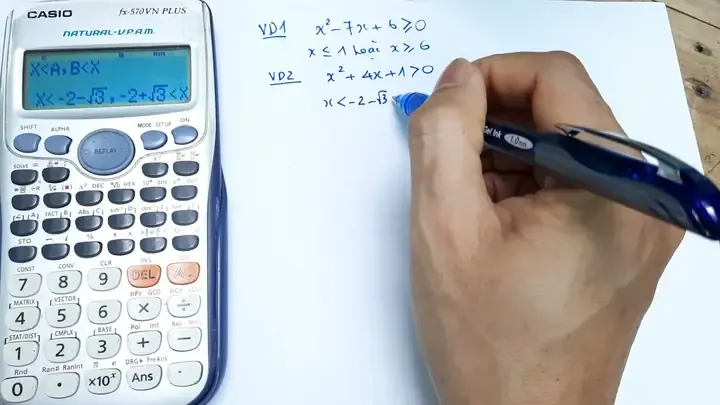 CASIO fx-570VN PLUS
NATURAL-V.P.A.M.
X<A, B<X
X<-2-√3, -2+√3<X
SHIFT ALPHA MODE SETUP ON
REPLAY
SOLVE =
DEC HEX BIN OCT
FACT Abs
STO
CONST CONV CLR INS
7 8 9 DEL A
MATRIX VECTOR nPr GCD nCr
4 5 6 × ÷
STAT/DIST CMPLX BASE Pol Int
1 2 3 + −
Rnd Ran# RanInt π e DRG▸ PreAns
0 • ×10ˣ Ans
VD1 x² - 7x + 6 ≥ 0
x ≤ 1 hoặc x ≥ 6
VD2 x² + 4x + 1 > 0
x < -2 - √3
Gel Ink 1.0mm